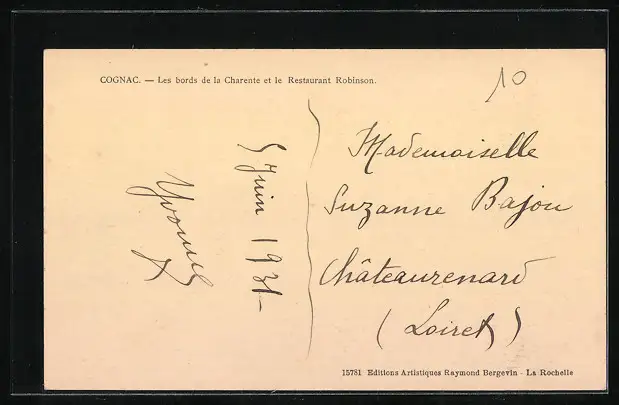 COGNAC. — Les bords de la Charente et le Restaurant Robinson.
10
5 Juin 1931
Yvonne
Mademoiselle
Suzanne Bajou
Châteaurenard
(Loiret)
15781 Editions Artistiques Raymond Bergevin - La Rochelle